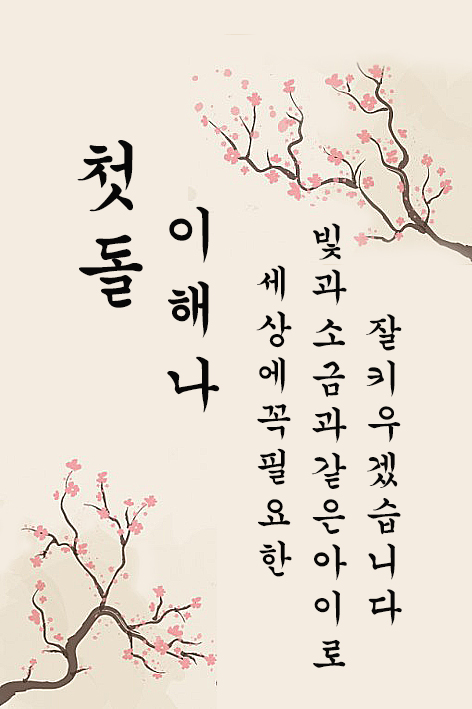 첫돌
이해나
세상에꼭필요한
빛과소금과같은아이로
잘키우겠습니다